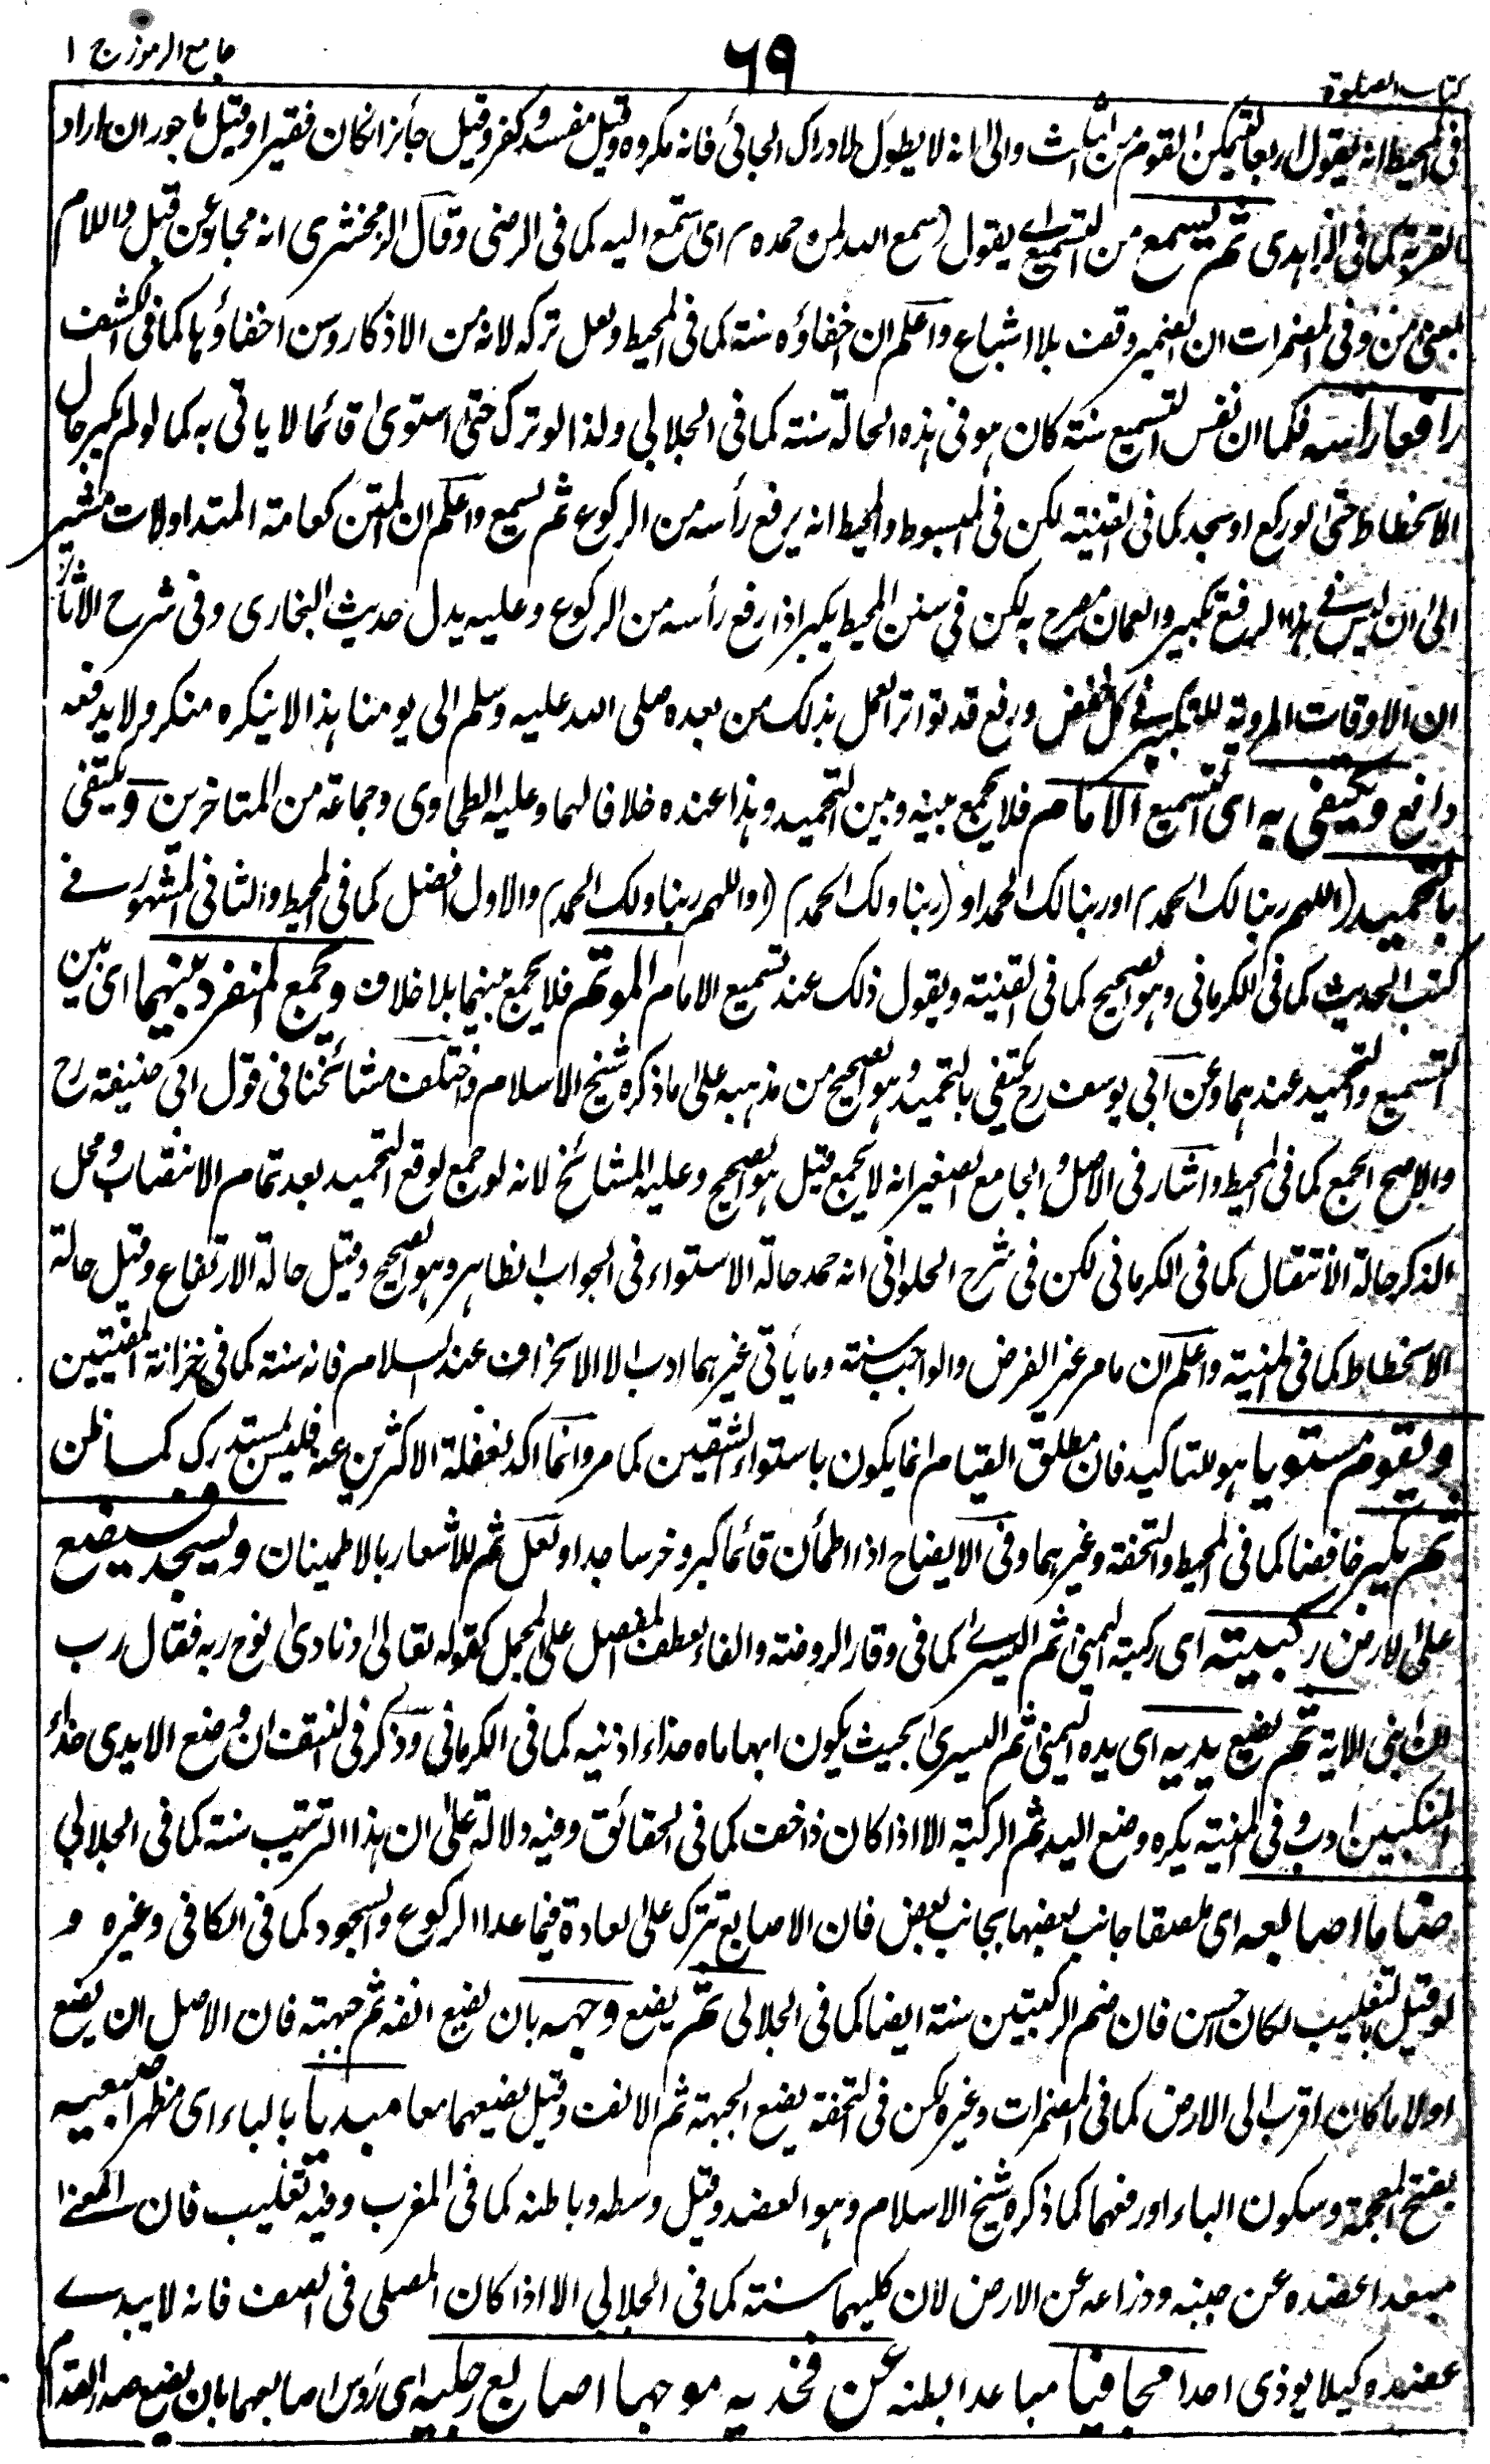 جامع الرموز ج ١
٦٩
كتاب الصلوة
فى المحيط انه يقول اربعا ليتمكن القوم من الثلث والى انه لا يطول لادراك الجائى فانه مكروه وقيل مفسد وكفر وقيل جائز ان كان فقيرا وقيل ماجور ان اراد
القربة كما فى الزاهدى ثم يسمع من التسميع اى يقول (سمع الله لمن حمده) اى استمع اليه كما فى الرضى وقال الزمخشرى انه مجاز عن قبل واللام
بمعنى من وفى المضمرات ان الضمير وقف بلا اشباع واعلم ان اخفاؤه سنة كما فى المحيط ولعل تركه لانه من الاذكار وسن اخفاؤها كما فى الكشف
رافعا راسه فكما ان نفس التسميع سنة كان هو فى هذه الحالة سنة كما فى الجلالى ولذا لو ترك حتى استوى قائما لا ياتى به كما لو لم يكبر حال
الانحطاط حتى لو ركع او سجد كما فى القنية لكن فى المبسوط والمحيط انه يرفع رأسه من الركوع ثم يسمع واعلم ان المتن كعامة المتداولات مشير
الى ان ليس فى هذا الرفع تكبير والعمان مصرح به لكن فى سنن المحيط يكبر اذا رفع رأسه من الركوع وعليه يدل حديث البخارى وفى شرح الاثار
ان الاوقات المروية للتكبير فى كل خفض ورفع قد تواتر العمل بذلك من بعده صلى الله عليه وسلم الى يومنا هذا لا ينكره منكر ولا يدفعه
دافع ويكتفى به اى التسميع الامام فلا يجمع بينه وبين التحميد وهذا عنده خلافا لهما وعليه الطحاوى وجماعة من المتاخرين ويكتفى
بالتحميد (اللهم ربنا لك الحمد) او ربنا لك الحمد او (ربنا ولك الحمد) (او اللهم ربنا ولك الحمد) والاول افضل كما فى المحيط والثانى المشهور فى
كتب الحديث كما فى الكرمانى وهو الصحيح كما فى القنية ويقول ذلك عند تسميع الامام المؤتم فلا يجمع بينهما بلا خلاف ويجمع المنفرد بينهما اى بين
التسميع والتحميد عندهما وعن ابى يوسف رح يكتفى بالتحميد وهو الصحيح من مذهبه على ما ذكره شيخ الاسلام واختلف مشائخنا فى قول ابى حنيفة رح
والاصح الجمع كما فى المحيط واشار فى الاصل والجامع الصغير انه لا يجمع قيل هو الصحيح وعليه المشائخ لانه لو جمع لوقع التحميد بعد تمام الانتصاب ومحل
الذكر حالة الانتقال كما فى الكرمانى لكن فى شرح الحلوانى انه حمد حالة الاستواء فى الجواب الظاهر وهو الصحيح وقيل حالة الارتفاع وقيل حالة
الانحطاط كما فى المنية واعلم ان ما مر غير الفرض والواجب سنة وما ياتى غيرهما ادب الا الانحراف عند السلام فانه سنة كما فى خزانة المفتيين
ويقوم مستويا هو للتاكيد فان مطلق القيام انما يكون باستواء الشقين كما مر وانما اكد لغفلة الاكثرين عنه فليس بمستدرك كما ظن
ثم يكبر خافضا كما فى المحيط والتحفة وغيرهما وفى الايضاح اذا اطمأن قائما كبر وخر ساجدا ولعل ثم للاشعار بالاطمينان ويسجد فيضع
على الارض ركبتيه اى ركبته اليمنى ثم اليسرى كما فى وقار الروضة والفاء لعطف المفصل على المجمل كقوله تعالى ونادى نوح ربه فقال رب
ان ابنى الاية ثم يضع يديه اى يده اليمنى ثم اليسرى بحيث يكون ابهاماه حذاء اذنيه كما فى الكرمانى وذكر فى النتف ان وضع الايدى حذاء
المنكبين ادب وفى المنية يكره وضع اليد ثم الركبة الا اذا كان ذا خف كما فى الحقائق وفيه دلالة على ان هذا الترتيب سنة كما فى الجلالى
ضاما اصابعه اى ملصقا جانب بعضها بجانب بعض فان الاصابع تترك على العادة فيما عدا الركوع والسجود كما فى الكافى وغيره و
لو قيل بالتغليب لكان احسن فان ضم الركبتين سنة ايضا كما فى الجلالى ثم يضع وجهه بان يضع انفه ثم جبهته فان الاصل ان يضع
اولا ما كان اقرب الى الارض كما فى المضمرات وغيره لكن فى التحفة يضع الجبهة ثم الانف وقيل يضعهما معا مبديا بالباء اى مظهرا ضبعيه
بفتح المعجمة وسكون الباء او رفعهما كما ذكره شيخ الاسلام وهو العضد وقيل وسطه وباطنه كما فى المغرب وفيه تغليب فان المعنى
مبعدا عضده عن جنبه وذراعه عن الارض لان كليهما سنة كما فى الجلالى الا اذا كان المصلى فى الصف فانه لا يبدى
عضده كيلا يوذى احدا مجافيا مباعدا بطنه عن فخذيه موجها اصابع رجليه اى رؤس اصابعهما بان يضع صدر القدم